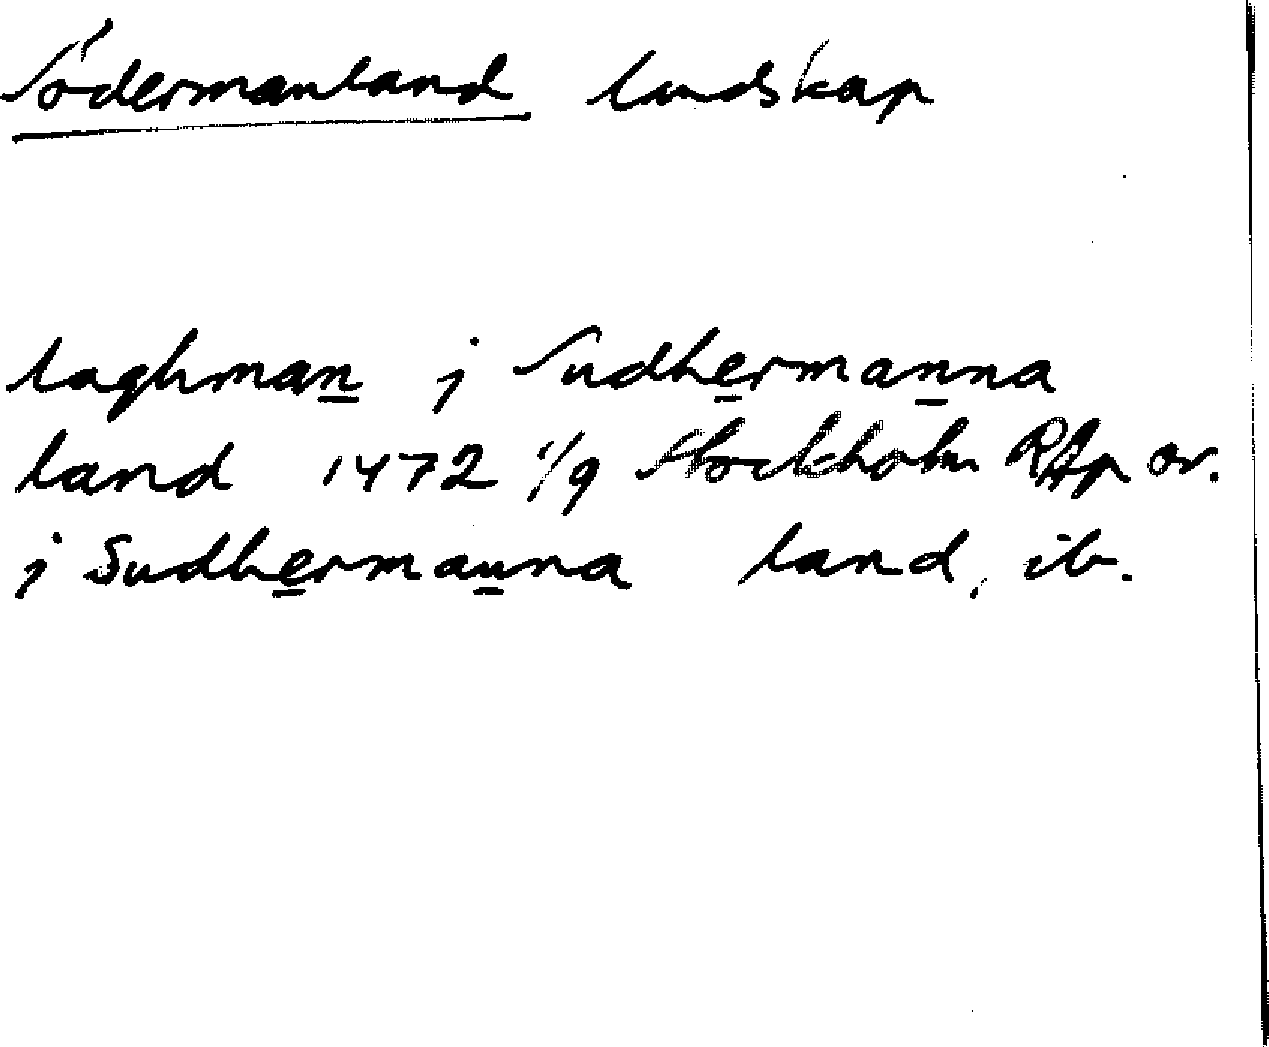 Södermanland landskap
laghman j Sudhermanna
land 1472 1/9 Stockholm RAp or.
j Sudhermanna land, ib.